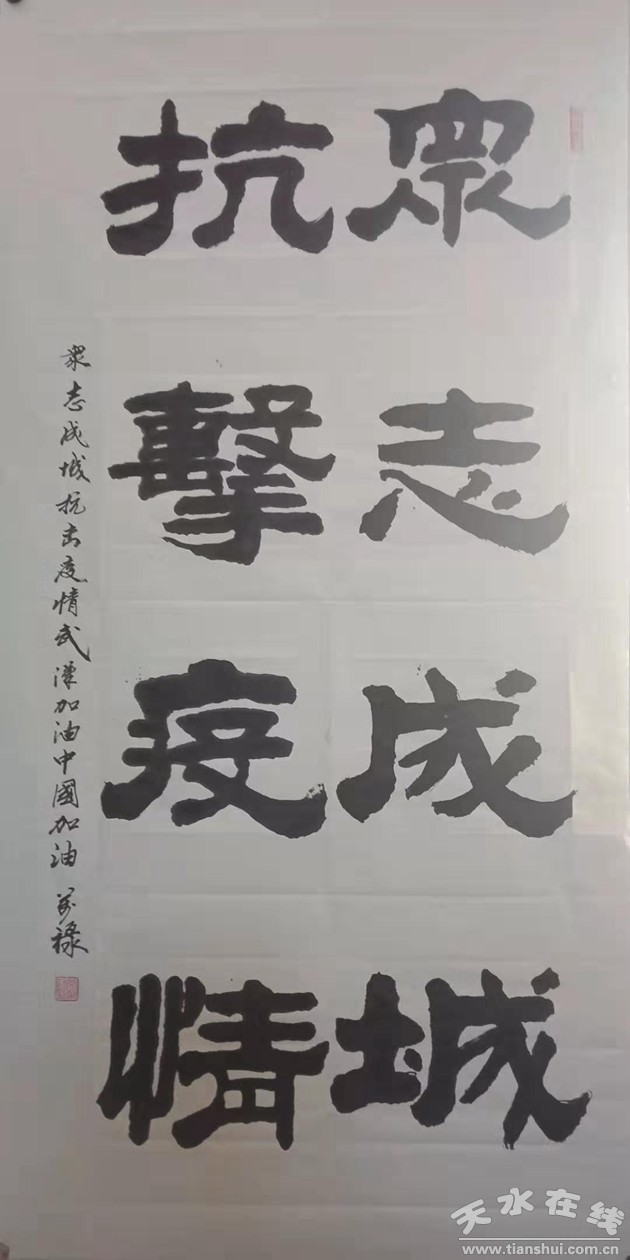 眾志成城
抗擊疫情
眾志成城抗击疫情武漢加油中國加油 万禄
天水在线
www.tianshui.com.cn